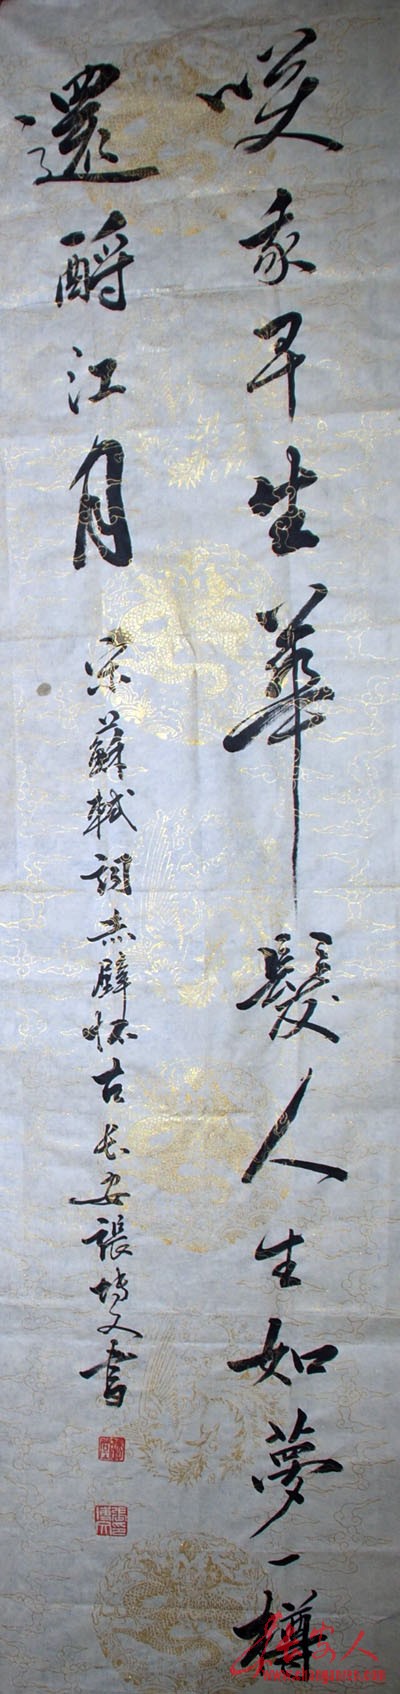 咲我早生華髮人生如夢一樽
還酹江月
宋蘇軾詞赤壁怀古长安張博文書